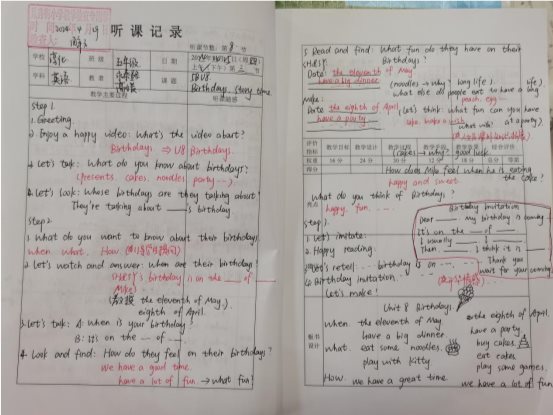 听课记录
听课节数: 第 8 节
学校
年级 五年级
日期
学科 英语
教者
课题 5BU8
Birthdays story time
教学主要过程
Step 1.
1. Greeting.
2. Enjoy a happy video: What's the video about?
Birthdays. ⇒ U8 Birthdays.
3. Let's talk: What do you know about birthdays?
(presents. cakes, noodles, party…).
4. Let's look: Whose birthdays are they talking about?
They're talking about ___'s birthday
Step 2
1. What do you want to know about their birthdays?
when. what. How.
2. Let's watch and answer: when are their birthdays?
's birthday is on the ___ of ___
Mike
the eleventh of May.
eighth of April.
3. Let's talk: A: when is your birthday?
B: It's on the ___ of ___.
4. Look and find: How do they feel on their birthdays?
We have a good time.
have a lot of fun. → what fun!
5. Read and find: What fun do they have on their
Birthdays?
Date: the eleventh of May
have a big dinner
(noodles → why? long life).
what else do people eat to have a long life.
peach. egg…
Mike:
Date the eighth of April.
have a party
(Let's think: What fun can you have
at a party).
评价指标 教学目标 教学设计 教学过程 教学效果 综合评价 总分 等第
权重 16分 24分 30分 12分 18分
得分
(cakes → why? good luck.
How does Mike feel when he is eating
the cake?
happy and sweet.
What do you think of Birthdays?
happy, fun. …
Step 3.
1. Let's imitate.
2. Happy reading.
3. Let's retell: ___ birthday is on …
4. Birthday invitation.
Let's make!
Birthday Invitation
Dear ___ my birthday is coming.
It's on the ___ of ___
I usually ___
Then ___ I think it is ___
Thank you
Wait for your coming
板书设计
Unit 8 Birthdays
when the eleventh of May the eighth of April.
have a big dinner have a party
what. eat some noodles. buy cakes.
play with Kitty eat cakes
play some games.
How. we have a great time. we have a lot of fun